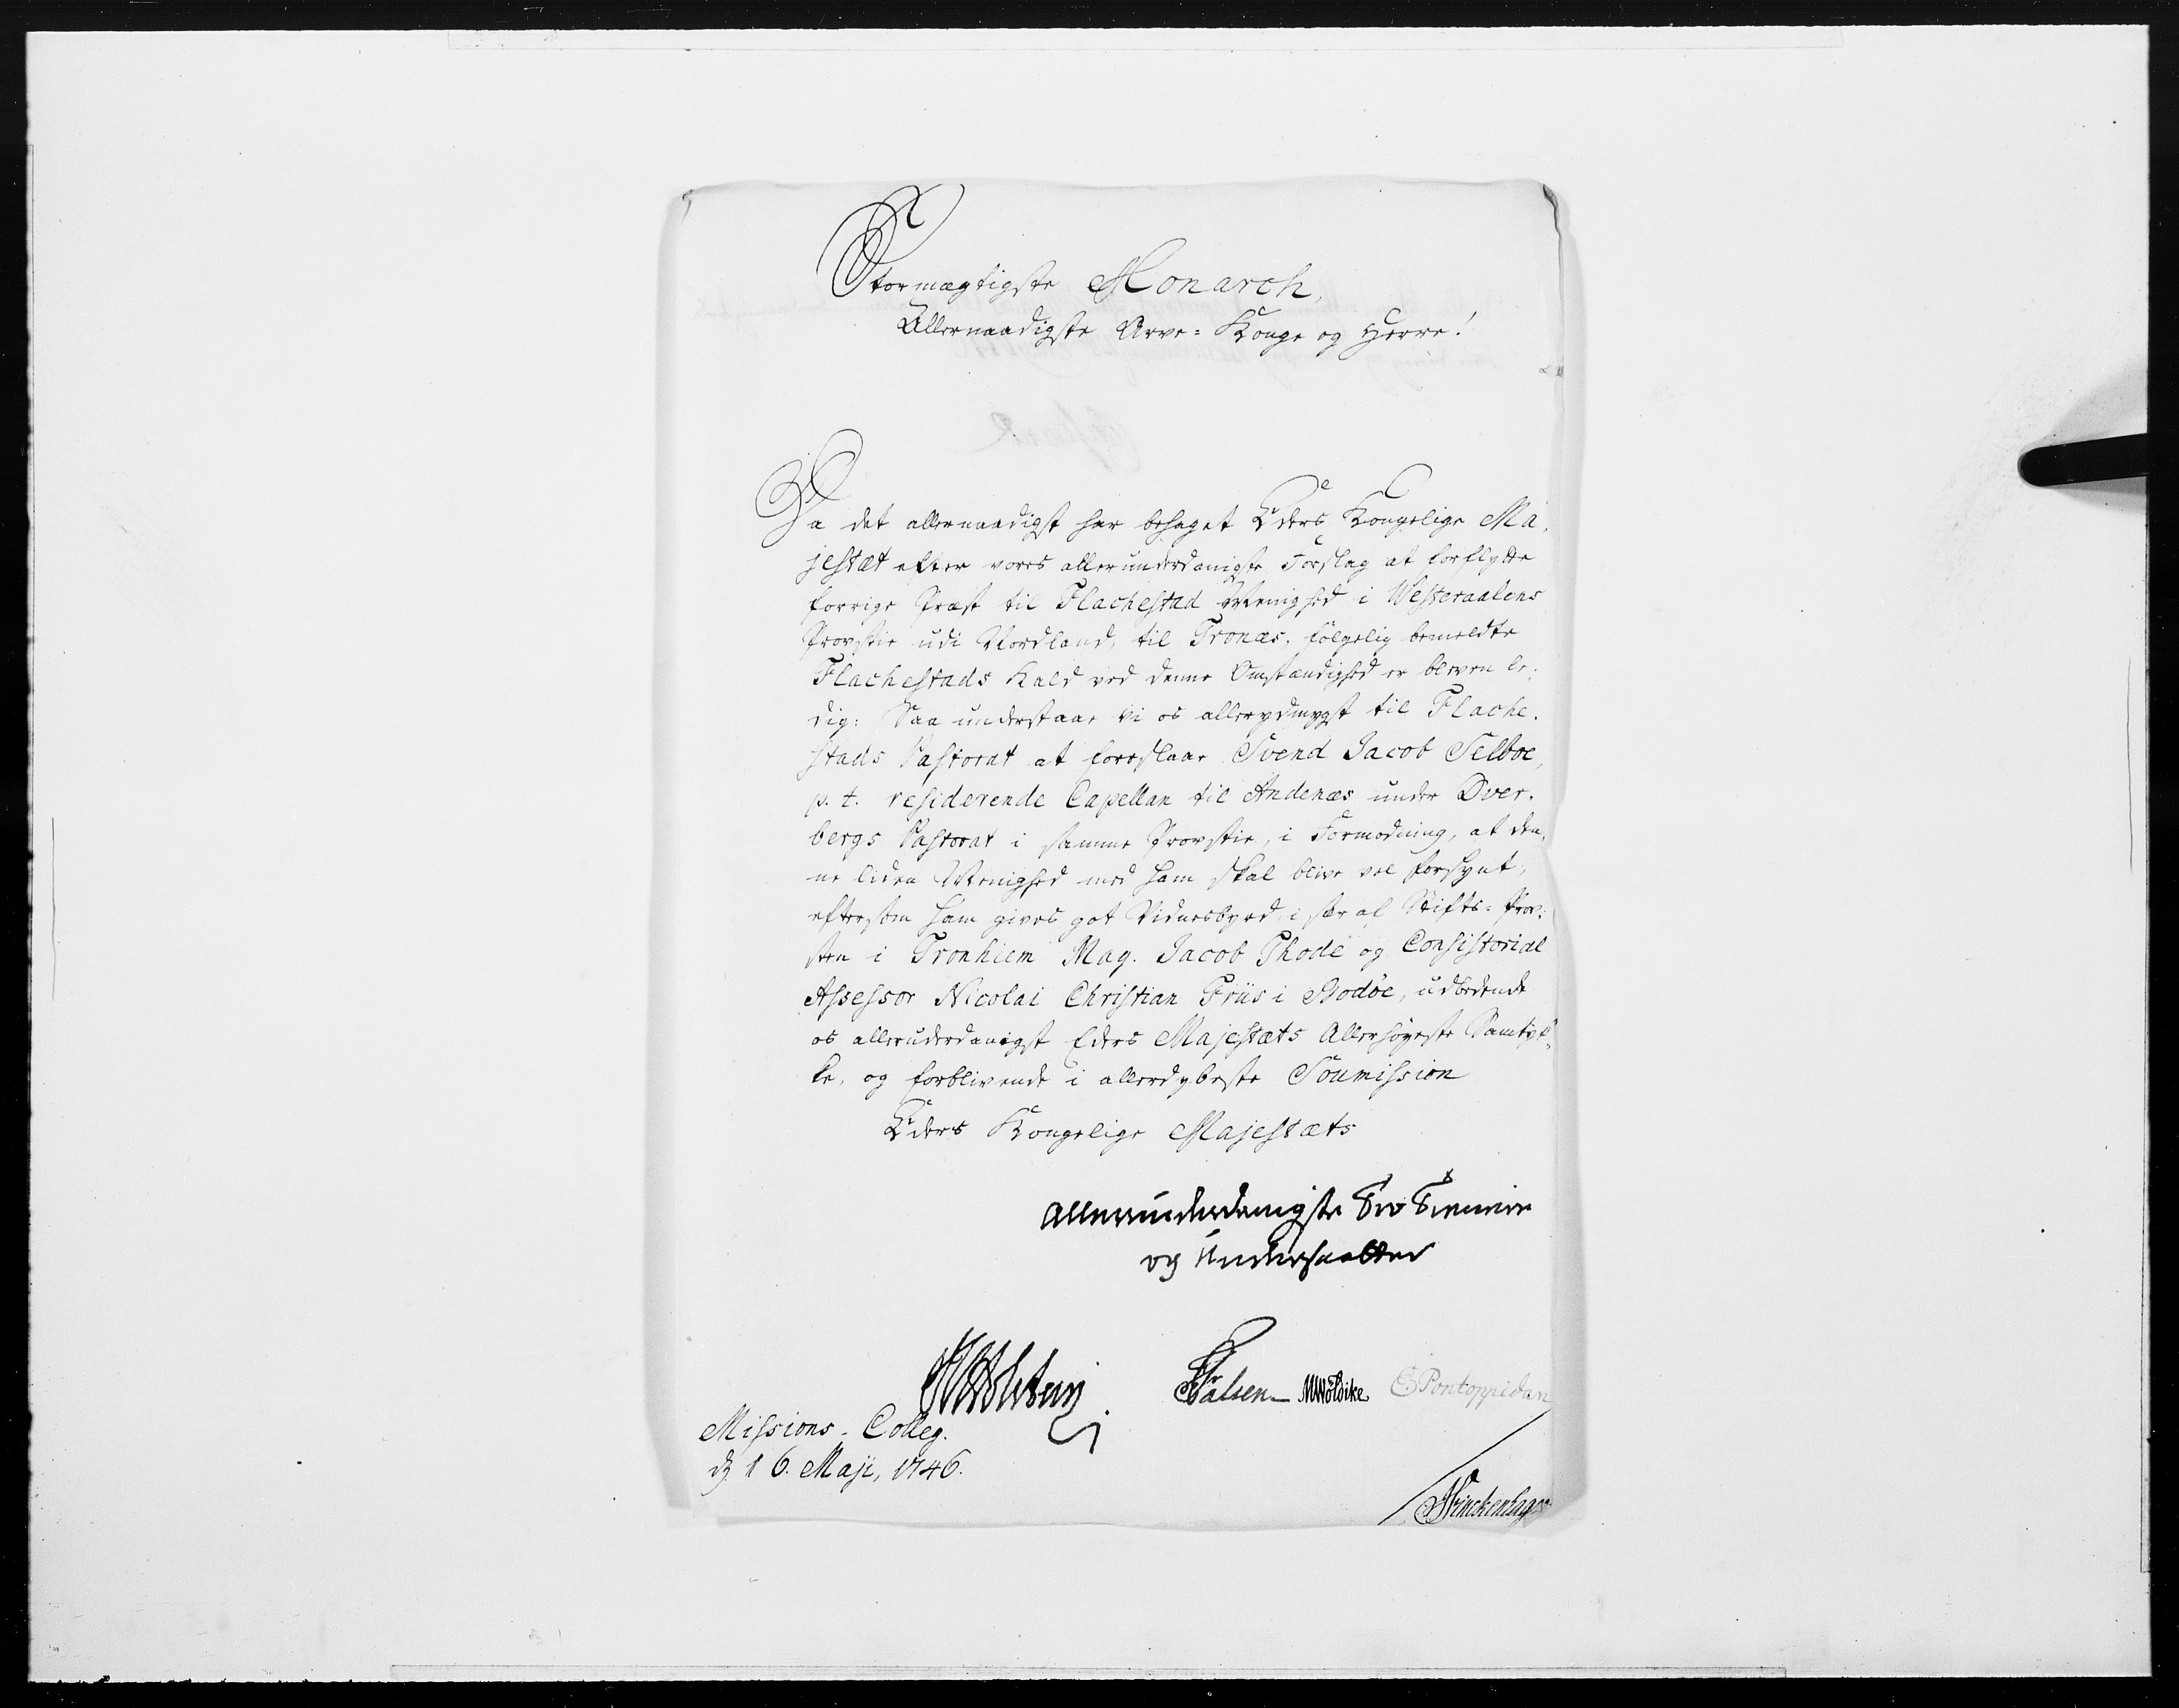 Stormægtigste Monarch,
Allernaadigste Arve-Konge og Herre!
Da det allernaadigst har behaget Eders Kongelige Ma-
jestæt efter vores allerunderdanigste Forslag at forflytte
forrige Præst til Flachestad Menighed i Westeraalens
Provstie udi Nordland, til Tronæs, følgelig bemeldte
Flachestads Kald ved denne Omstændighed er bleven le-
dig: Saa understaae Vi os allerydmygst til Flache-
stads Pastorat at foreslaae Svend Jacob Selboe,
p. t. residerende Capellan til Andenæs under Dver-
bergs Pastorat i samme Provstie, i Formodning, at den-
ne liden Menighed med ham skal blive vel forsynt,
eftersom ham gives got Vidnesbyrd, i sær af Stifts-Prov-
sten i Tronhiem Mag. Jacob Thode og Consistorial
Assessor Nicolai Christian Friis i Bodöe, udbedende
os allerunderdanigst Eders Majestæts Allerhøyeste Samtyk-
ke, og forblivende i allerdybeste Soumission
Eders Kongelige Majestæts
allerunderdanigste Troe Tienere
og Undersaatter
JLHolstein
Falsen MWöldike EPontoppidan
Missions-Colleg.
d. 16. Maji, 1746.
Finckenhagen